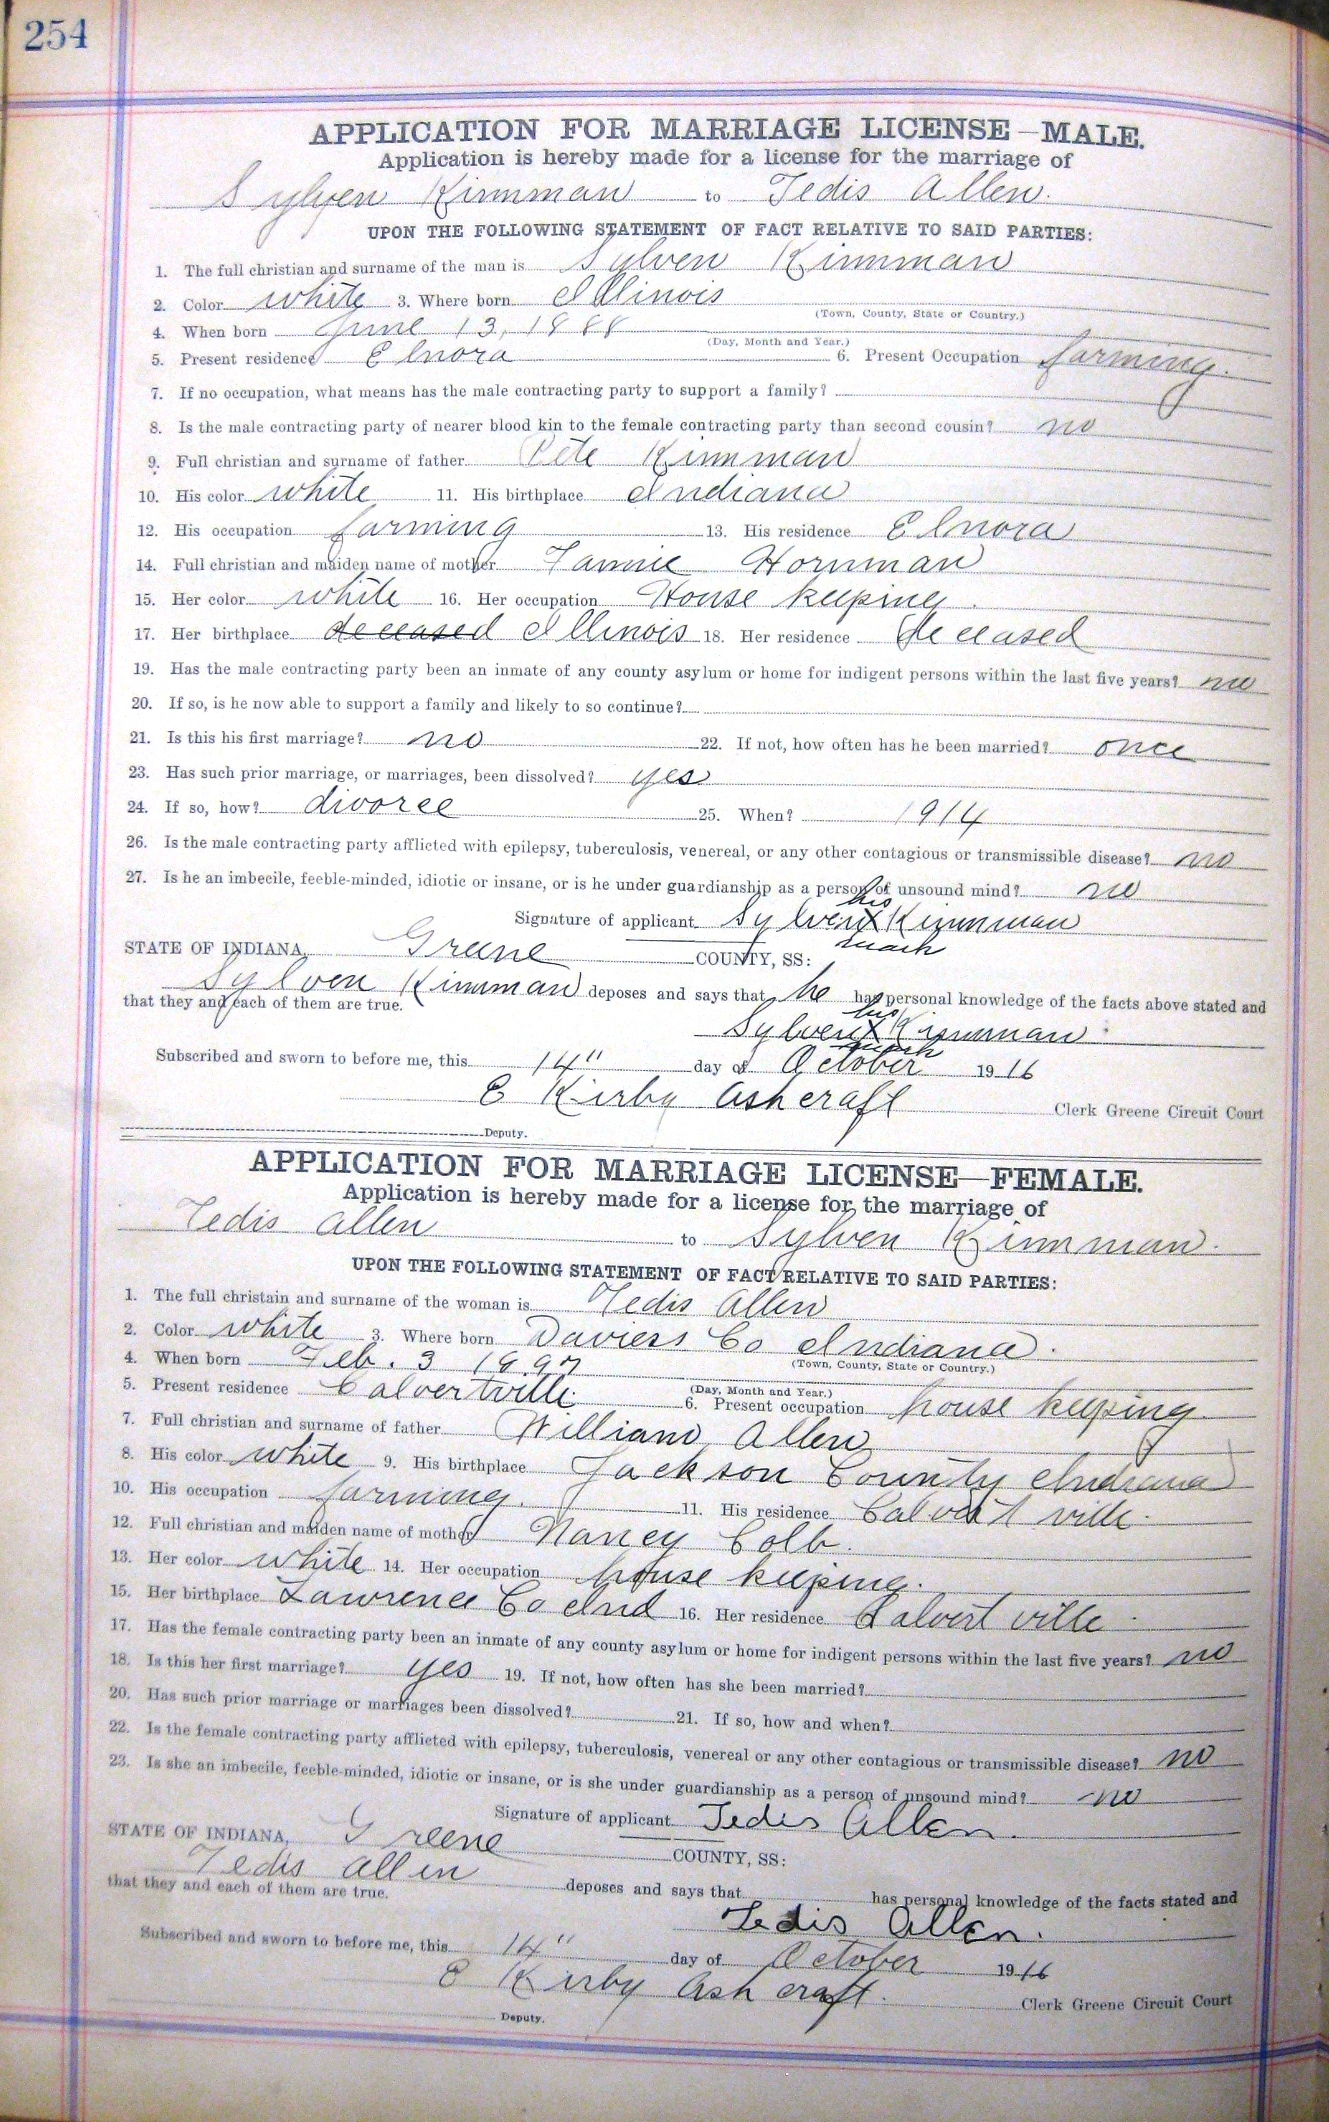 254
APPLICATION FOR MARRIAGE LICENSE—MALE.
Application is hereby made for a license for the marriage of
Sylven Kinnman to Tedis Allen.
UPON THE FOLLOWING STATEMENT OF FACT RELATIVE TO SAID PARTIES:
1. The full christian and surname of the man is Sylven Kinnman
2. Color white 3. Where born Illinois
(Town, County, State or Country.)
4. When born June 13, 1888
(Day, Month and Year.)
5. Present residence Elnora 6. Present Occupation farming.
7. If no occupation, what means has the male contracting party to support a family?
8. Is the male contracting party of nearer blood kin to the female contracting party than second cousin? no
9. Full christian and surname of father Pete Kinnman
10. His color white 11. His birthplace Indiana
12. His occupation farming 13. His residence Elnora
14. Full christian and maiden name of mother Fannie Hornman
15. Her color white 16. Her occupation House keeping
17. Her birthplace deceased Illinois 18. Her residence deceased
19. Has the male contracting party been an inmate of any county asylum or home for indigent persons within the last five years? no
20. If so, is he now able to support a family and likely to so continue?
21. Is this his first marriage? no 22. If not, how often has he been married? once
23. Has such prior marriage, or marriages, been dissolved? yes
24. If so, how? divorce 25. When? 1914
26. Is the male contracting party afflicted with epilepsy, tuberculosis, venereal, or any other contagious or transmissible disease? no
27. Is he an imbecile, feeble-minded, idiotic or insane, or is he under guardianship as a person of unsound mind? no
his
Signature of applicant Sylven X Kinnman
mark
STATE OF INDIANA, Greene COUNTY, SS:
Sylven Kinnman deposes and says that he has personal knowledge of the facts above stated and
that they and each of them are true.
his
Sylven X Kinnman
mark
Subscribed and sworn to before me, this 14" day of October 1916
E Kirby Ashcraft Clerk Greene Circuit Court
Deputy.
APPLICATION FOR MARRIAGE LICENSE—FEMALE.
Application is hereby made for a license for the marriage of
Tedis Allen to Sylven Kinnman.
UPON THE FOLLOWING STATEMENT OF FACT RELATIVE TO SAID PARTIES:
1. The full christain and surname of the woman is Tedis Allen
2. Color white 3. Where born Daviess Co Indiana.
(Town, County, State or Country.)
4. When born Feb. 3 1897
(Day, Month and Year.)
5. Present residence Calvertville. 6. Present occupation house keeping
7. Full christian and surname of father William Allen
8. His color white 9. His birthplace Jackson County Indiana
10. His occupation farming. 11. His residence Calvert ville.
12. Full christian and maiden name of mother Nancy Colb.
13. Her color white 14. Her occupation house keeping.
15. Her birthplace Lawrence Co Ind 16. Her residence Calvert ville.
17. Has the female contracting party been an inmate of any county asylum or home for indigent persons within the last five years? no
18. Is this her first marriage? yes 19. If not, how often has she been married?
20. Has such prior marriage or marriages been dissolved? 21. If so, how and when?
22. Is the female contracting party afflicted with epilepsy, tuberculosis, venereal or any other contagious or transmissible disease? no
23. Is she an imbecile, feeble-minded, idiotic or insane, or is she under guardianship as a person of unsound mind? no
Signature of applicant Tedis Allen.
STATE OF INDIANA, Greene COUNTY, SS:
Tedis Allen deposes and says that has personal knowledge of the facts stated and
that they and each of them are true.
Tedis Allen.
Subscribed and sworn to before me, this 14" day of October 1916
E Kirby Ashcraft. Clerk Greene Circuit Court
Deputy.